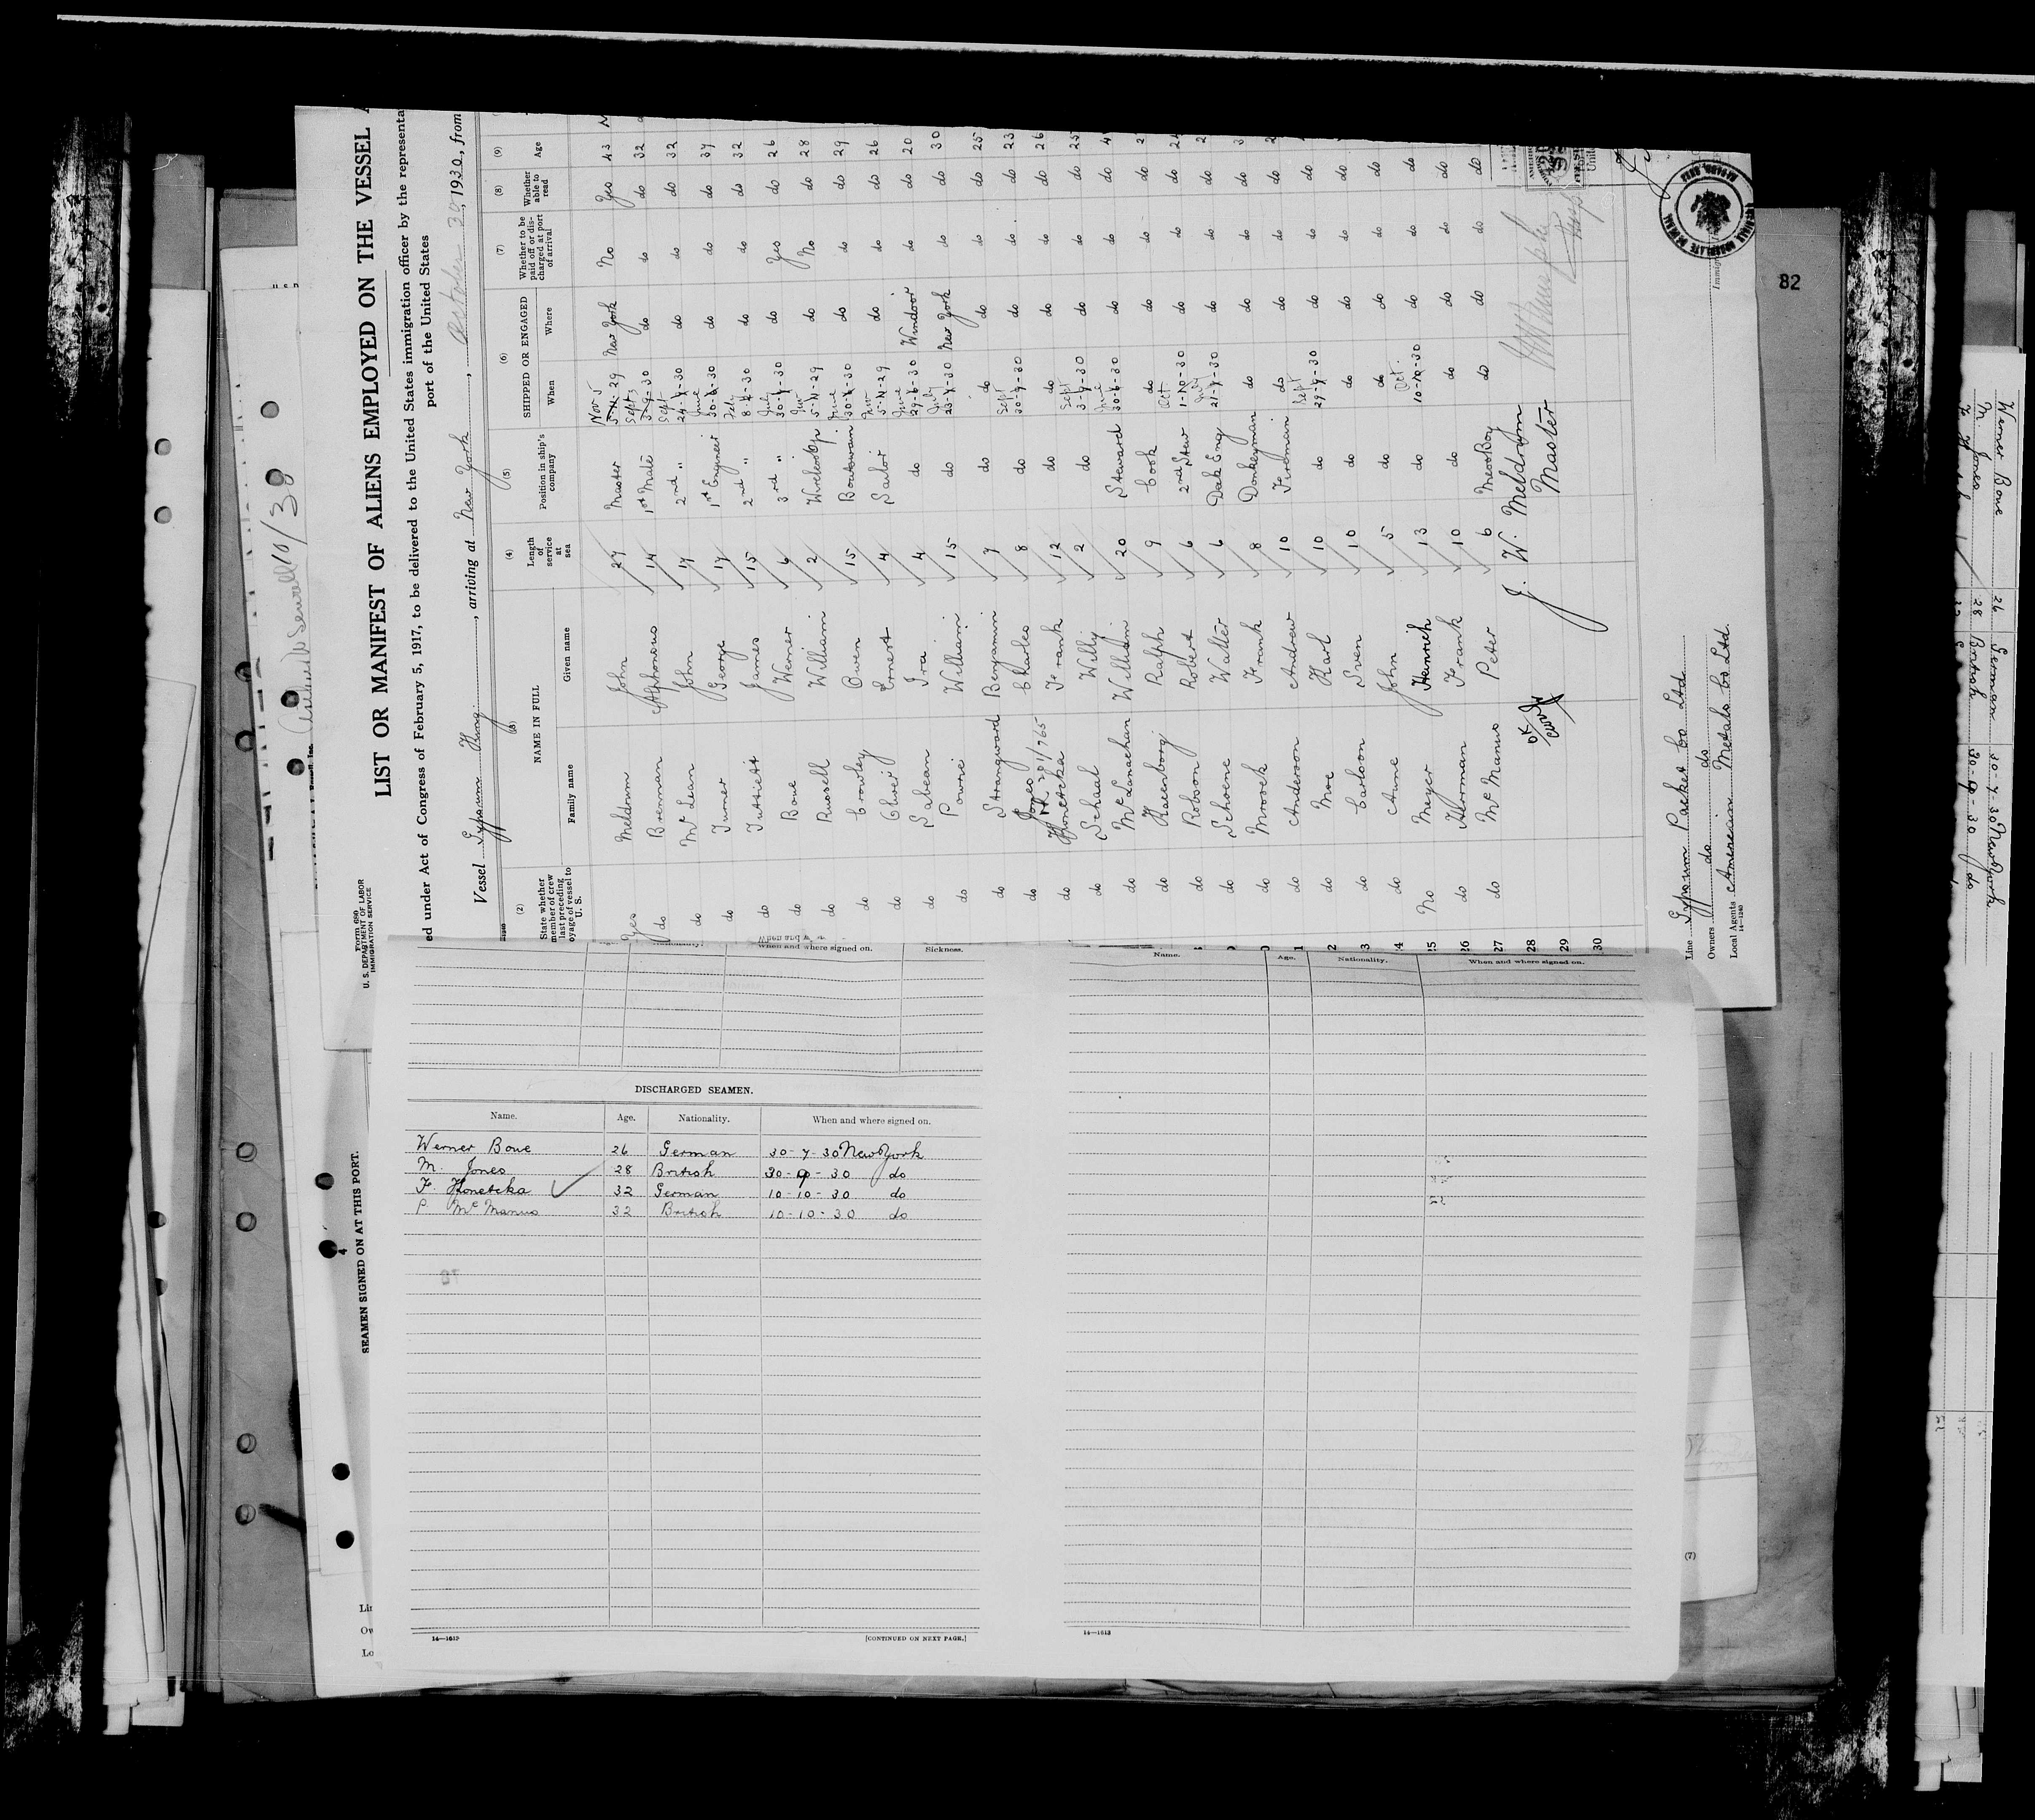 Form 680
U. S. DEPARTMENT OF LABOR
IMMIGRATION SERVICE
LIST OR MANIFEST OF ALIENS EMPLOYED ON THE VESSEL
ed under Act of Congress of February 5, 1917, to be delivered to the United States immigration officer by the representa
port of the United States
Vessel Gypsum King, arriving at New York, October 30, 1930, from
(2) (3) (4) (5) (6) (7) (8) (9)
State whether member of crew last preceding oyage of vessel to U. S.
NAME IN FULL
Family name Given name
Length of service at sea
Position in ship's company
SHIPPED OR ENGAGED
When Where
Whether to be paid off or discharged at port of arrival
Whether able to read
Age
Yes Meldrum John 27 Master Nov 5 5-11-29 New York No Yes 43
do Brennan Alphonsus 14 1st Mate Sept 3 3-9-30 do do do 32
do McLean John 17 2nd " Sept 24-9-30 do do do 32
do Turner George 17 1st Engineer June 30-6-30 do do do 37
do James 15 2nd " July 30 do do do 32
do Boue Werner 6 3rd " July 30-7-30 do Yes do 26
do Russell William 2 Nov 5-11-29 do No do 28
do Crowley Owen 15 Boatswain June 30-6-30 do do do 29
do Ernest 4 Sailor Nov 5-11-29 do do do 26
do Sabean Ira 4 do June 29-6-30 Windsor do do 20
do Powrie William 15 do July 23-7-30 New York do do 30
do Strangward Benjamin 7 do do do do do 25
do Jones Charles 8 do Sept 30-9-30 do do do 23
do Honetcka Frank 12 do do do do do 26
do Schaal Willy 2 do Sept 3-9-30 do do do 25
do McLanachan William 20 Steward June 30-6-30 do do do 4
do Ralph 9 Cook do do do do 2
do Robson Robert 6 2nd Stew Oct 1-10-30 do do do 24
do Schoene Walter 6 Dak Eng July 21-7-30 do do do 2
do Mrosek Frank 8 Donkeyman do do do do 3
do Anderson Andrew 10 Fireman do do do do 2
do Moe Karl 10 do Sept 29-9-30 do do do
do Carlson Sven 10 do do do do do
do Aune John 5 do do do do do
25 No Meyer Heinrich 13 do Oct. 10-10-30 do do do
26 do Herrman Frank 10 do do do do
27 do McManus Peter 6 MessBoy do do do do
28
29
30
J. W. Meldrum
Master
OK
Line Gypsum Packet Co Ltd
Owners do do
Local Agents American Metals Co Ltd.
14-1240
82
Name. Age. Nationality. When and where signed on.
When and where signed on. Sickness.
SEAMEN SIGNED ON AT THIS PORT.
4
DISCHARGED SEAMEN.
Name. Age. Nationality. When and where signed on.
Werner Boue 26 German 30-7-30 New York
M. Jones 28 British 30-9-30 do
F. Honetcka 32 German 10-10-30 do
P. McManus 32 British 10-10-30 do
14—1613
[CONTINUED ON NEXT PAGE.]
14—1613
(7)
Werner Boue 26 German 30-7-30 New York
M. Jones 28 British 30-9-30 do